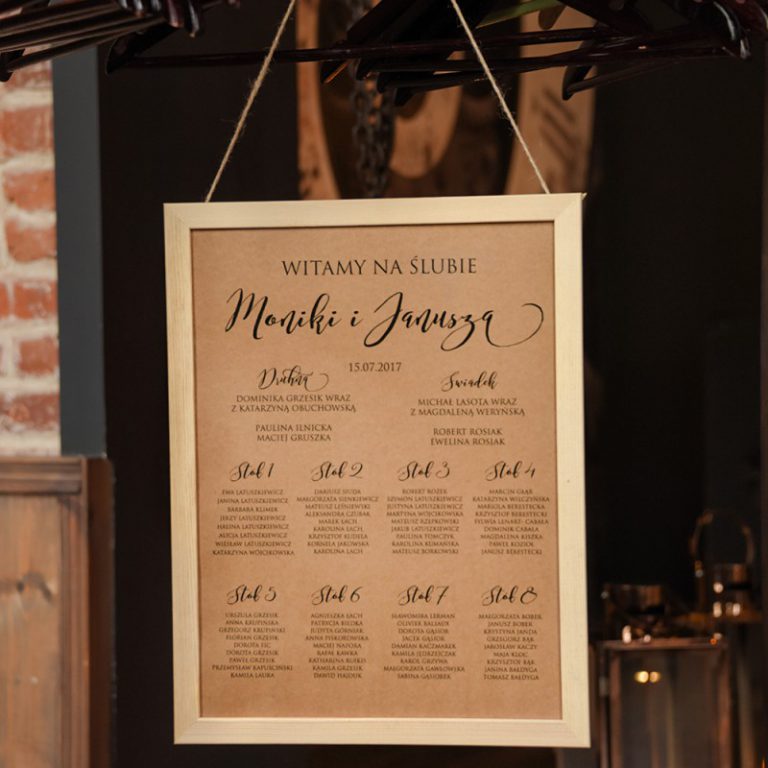 WITAMY NA ŚLUBIE
Moniki i Janusza
15.07.2017
Druhna
DOMINIKA GRZESIK WRAZ
Z KATARZYNĄ OBUCHOWSKĄ
PAULINA ILNICKA
MACIEJ GRUSZKA
Świadek
MICHAŁ LASOTA WRAZ
Z MAGDALENĄ WERYŃSKĄ
ROBERT ROSIAK
EWELINA ROSIAK
Stół 1
EWA LATUSZKIEWICZ
JANINA LATUSZKIEWICZ
BARBARA KLIMEK
JERZY LATUSZKIEWICZ
HALINA LATUSZKIEWICZ
ALICJA LATUSZKIEWICZ
WIESŁAW LATUSZKIEWICZ
KATARZYNA WÓJCIKOWSKA
Stół 2
DARIUSZ SIUDA
MAŁGORZATA SIENKIEWICZ
MATEUSZ LEŚNIEWSKI
ALEKSANDRA CZUBAK
MAREK ŁACH
KAROLINA ŁACH
KRZYSZTOF KUDEŁA
KORNELA JAKOWSKA
KAROLINA ŁACH
Stół 3
ROBERT ROŻEK
SZYMON LATUSZKIEWICZ
JUSTYNA LATUSZKIEWICZ
MARTYNA WÓJCIKOWSKA
MATEUSZ RZEPKOWSKI
JAKUB LATUSZKIEWICZ
PAULINA TOMCZYK
KAROLINA KUMAŃSKA
MATEUSZ BORKOWSKI
Stół 4
MARCIN GŁĄB
KATARZYNA WILCZYŃSKA
MARIOLA BERESTECKA
KRZYSZTOF BERESTECKI
SYLWIA LENART- CABAŁA
DOMINIK CABAŁA
MAGDALENA KISZKA
PAWEŁ KOZIOŁ
JANUSZ BERESTECKI
Stół 5
URSZULA GRZESIK
ANNA KRUPIŃSKA
GRZEGORZ KRUPIŃSKI
FLORIAN GRZESIK
DOROTA FIC
DOROTA GRZESIK
PAWEŁ GRZESIK
PRZEMYSŁAW KAPUŚCIŃSKI
KAMILA LAURA
Stół 6
AGNIESZKA ŁACH
PATRYCJA BIEDKA
JUDYTA GÓRNIAK
ANNA PISKOROWSKA
MACIEJ NAPORA
RAFAŁ KAWKA
KATHARINA KUBEŁ
KAMILA GRZESIK
DAWID HAJDUK
Stół 7
SŁAWOMIRA LERMAN
OLIVIER BALAUR
DOROTA GĄSIOR
JACEK GĄSIOR
DAMIAN KACZMAREK
KAMILA JĘDRZEJCZAK
KAROL GRZYWA
MAŁGORZATA GAWŁOWSKA
SABINA GĄSIOREK
Stół 8
MAŁGORZATA BOBEK
JANUSZ BOBEK
KRYSTYNA JANDA
GRZEGORZ BĄK
JAROSŁAW KACZY
MAJA KLOC
KRZYSZTOF BĄK
JANINA BAŁDYGA
TOMASZ BAŁDYGA